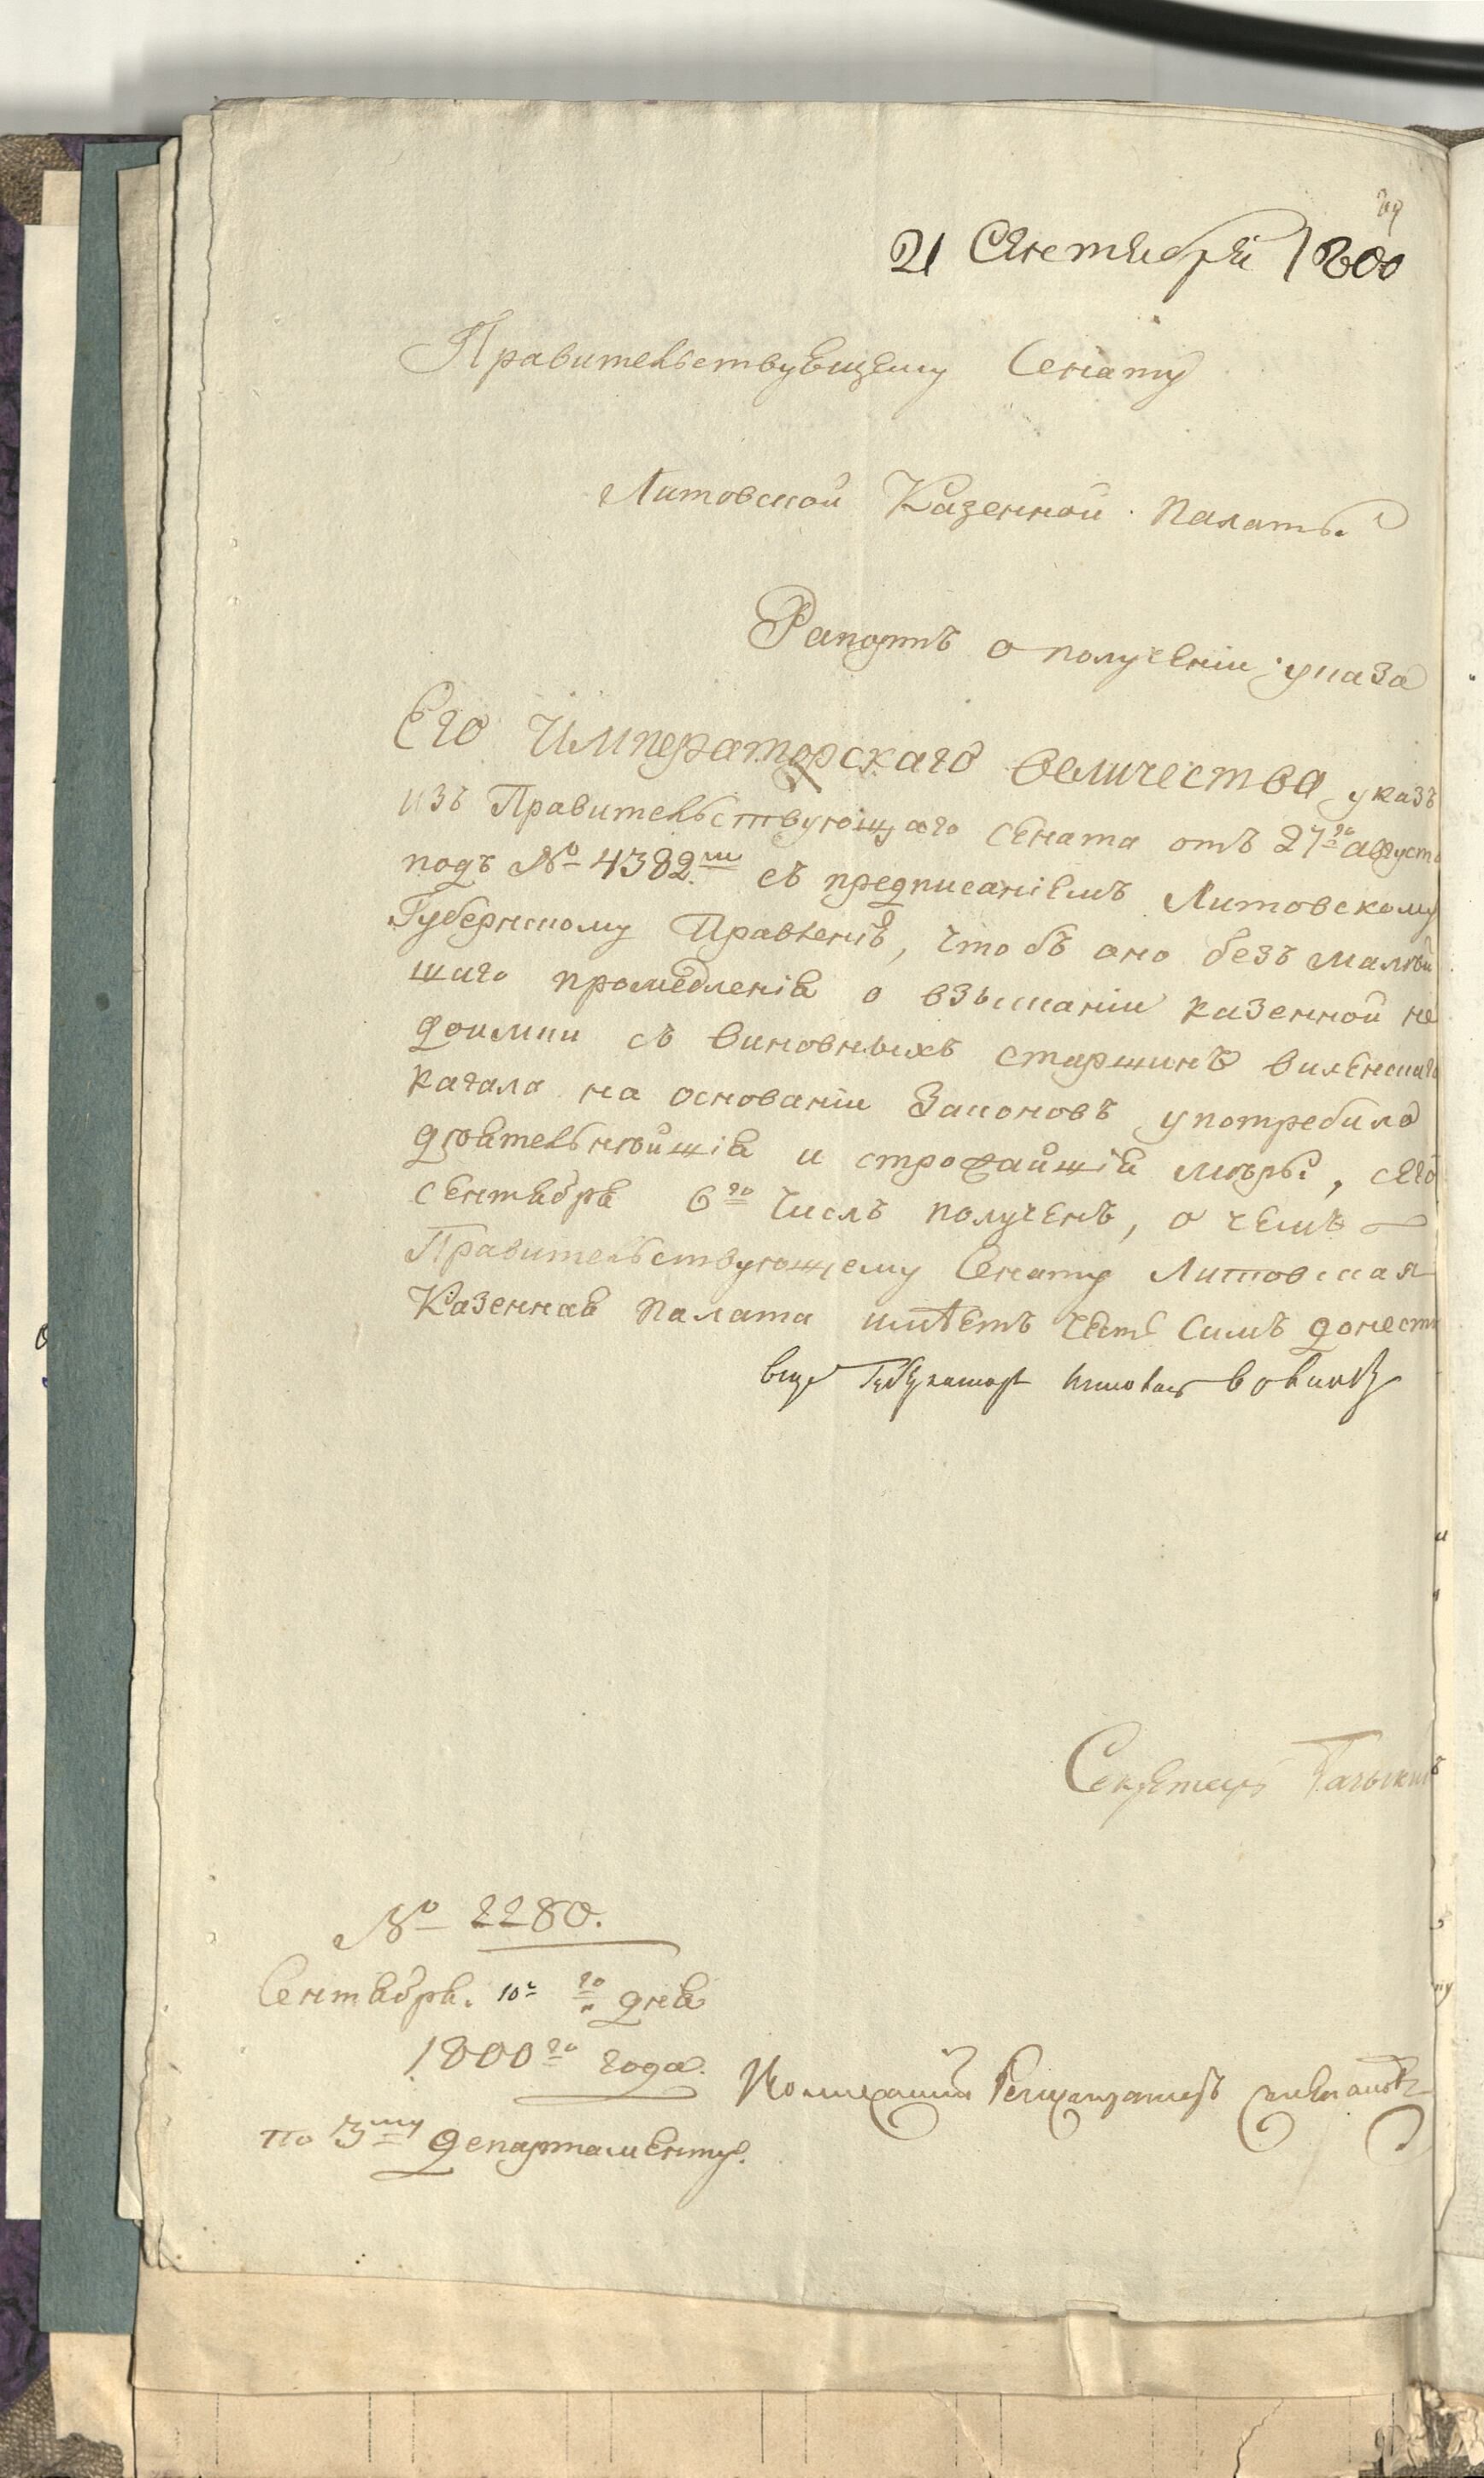 21 Сентября 1800
Правительствующему Сенату
Литовской Казенной Палаты
Рапортъ о полученіи указа
Его Императорскаго величества указъ
изъ Правительствующаго сената отъ 27го августа
подъ № 4382мъ съ предписаніемъ Литовскому
Губернскому Правленію, что бъ оно безъ малѣй
шаго промедленія о взысканіи казенной не
доимки съ виновныхъ старшинъ виленскаго
кагала на основаніи Законовъ употребило
дѣятельнѣйшія и строжайшія мѣры, сего
сентября 6го числъ полученъ, о чемъ
Правительствующему Сенату Литовская
Казенная палата имѣетъ честь симъ донести
вице Губернаторъ
Секретарь
№ 2280.
Сентября 10 го дня
1800го года.
по 3му департаменту.
Регистраторъ